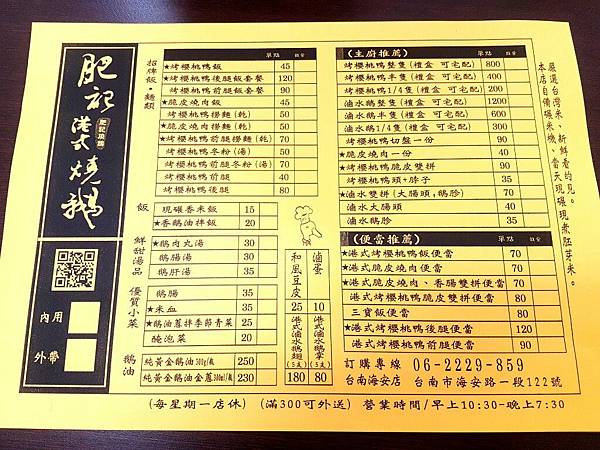 肥記港式燒鵝
內用
外帶
招牌飯·麵類
單點 數量
★烤櫻桃鴨飯 45
★烤櫻桃鴨後腿飯套餐 120
烤櫻桃鴨前腿飯套餐 90
★脆皮燒肉飯 45
烤櫻桃鴨撈麵(乾) 50
★脆皮燒肉撈麵(乾) 50
★烤櫻桃鴨前腿撈麵(乾) 70
烤櫻桃鴨冬粉(湯) 50
烤櫻桃鴨前腿冬粉(湯) 70
烤櫻桃鴨前腿 40
烤櫻桃鴨後腿 80
飯
現碾香米飯 15
★香鵝油拌飯 20
鮮甜湯品
★鵝肉丸湯 30
鵝腸湯 30
鵝肝湯 35
優質小菜
鵝腸 35
★米血 35
★鵝油蔥拌季節青菜 35
酸泡菜 20
鵝油
純黃金鵝油300g/瓶 250
純黃金鵝油金蔥300ml/瓶 230
和風豆皮 25
滷蛋 10
港式滷水鵝翅(5支) 180
港式滷水鵝掌(5支) 80
(主廚推薦) 單點 數量
烤櫻桃鴨整隻(禮盒 可宅配) 800
烤櫻桃鴨半隻(禮盒 可宅配) 400
烤櫻桃鴨1/4隻(禮盒 可宅配) 200
滷水鵝整隻(禮盒 可宅配) 1200
滷水鵝半隻(禮盒 可宅配) 600
滷水鵝1/4隻(禮盒 可宅配) 300
烤櫻桃鴨切盤一份 90
★脆皮燒肉一份 40
★烤櫻桃鴨脆皮雙拼 90
烤櫻桃鴨頭+脖子 35
★滷水雙拼(大腸頭、鵝胗) 70
滷水大腸頭 40
滷水鵝胗 35
(便當推薦) 單點 數量
★港式烤櫻桃鴨飯便當 70
★港式脆皮燒肉便當 70
★港式脆皮燒肉、香腸雙拼便當 70
港式烤櫻桃鴨脆皮雙拼便當 80
三寶飯便當 90
★港式烤櫻桃鴨後腿便當 120
港式烤櫻桃鴨前腿便當 90
嚴選台灣米、新鮮看的見。
本店自備碾米機、當天現碾現煮胚芽米。
訂購專線 06-2229-859
台南海安店 台南市海安路一段122號
(每星期一店休) (滿300可外送) 營業時間/早上10:30-晚上7:30